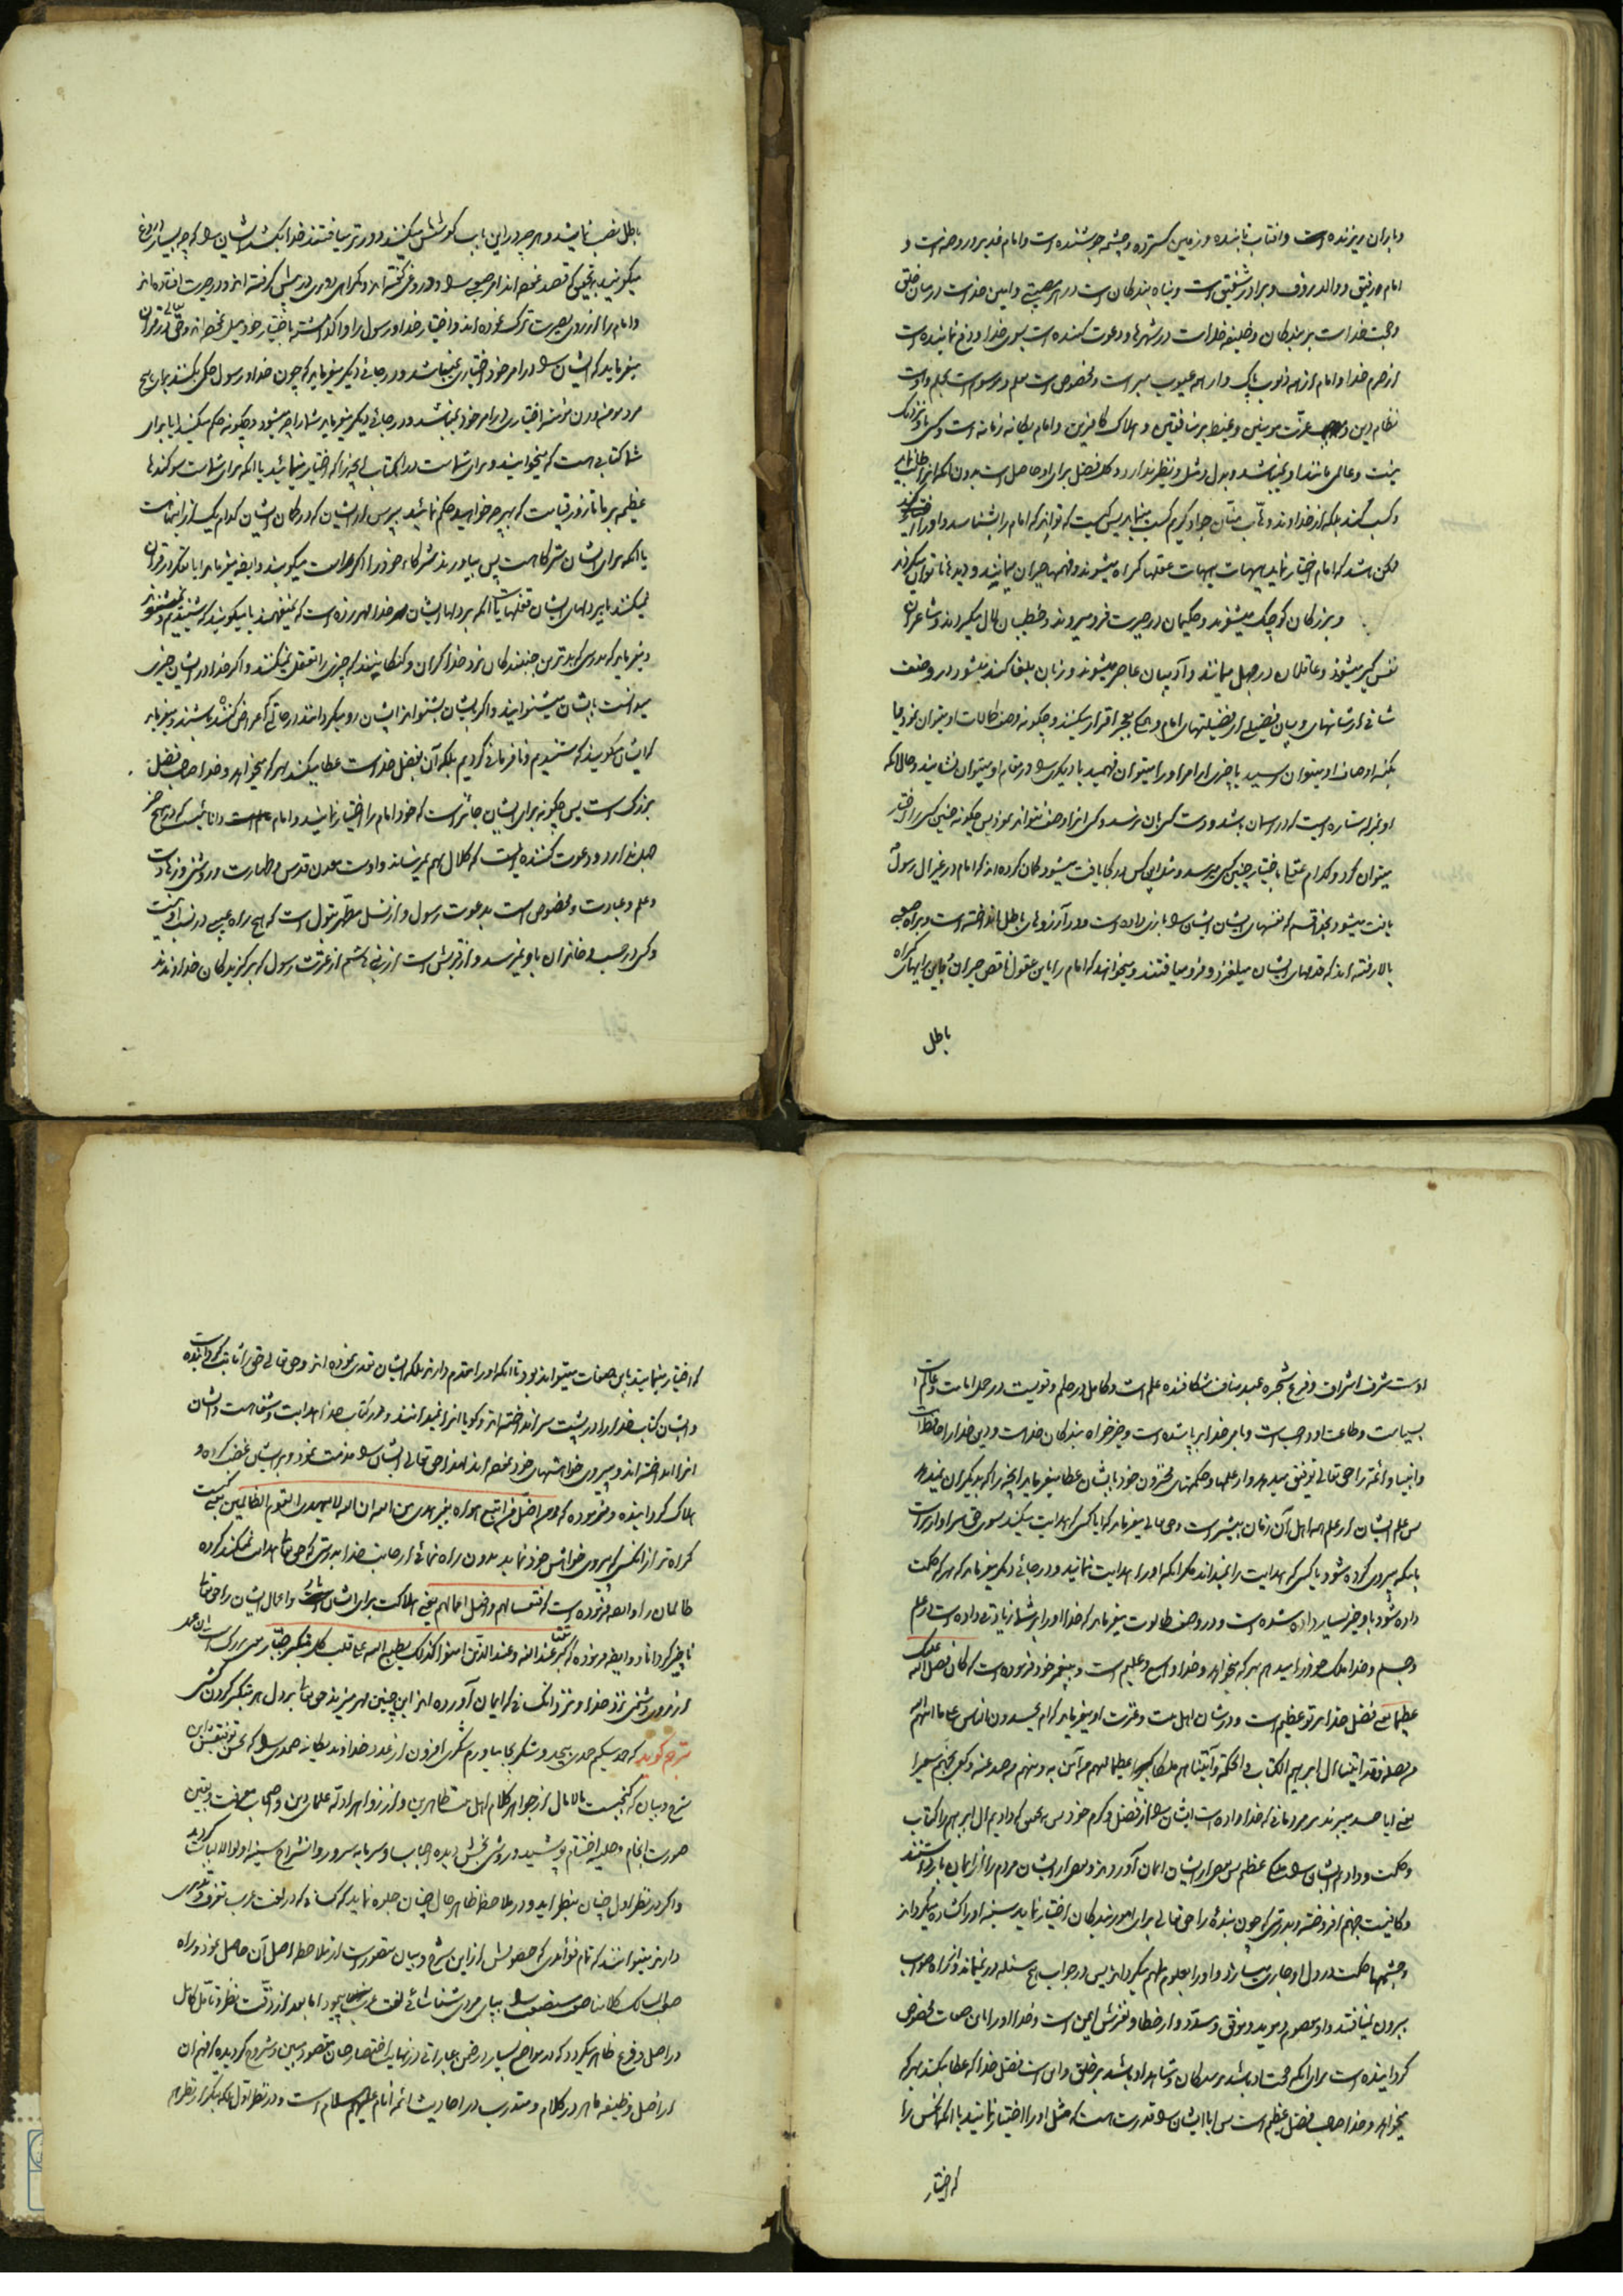 و باران ریزنده است و افتاب تابنده و زمین کسترده و چشمه جوشنده است و امام غدیر و روضه است و
امام رفیق و والد رؤف و برادر شفیق است و پناه بندکان است در هر مصیبتی و امین خداست در میان خلق
و حجت خداست بر بندکان و خلیفه خداست در شهرها و دعوت کننده است بسوی خدا و دفع نماینده است
از حرم خدا و امام از همه ذنوب پاک و از همه عیوب مبرا است و مخصوص است بعلم و موسوم است بحلم و اوست
نظام دین و عزّت مومنین و غیظ بر منافقین و هلاک کافرین و امام یکانه زمانه است و کسی با و نزدیک
نیست و عالمی مانند او نمیباشد و بدل و مثل و نظیر ندارد و کل فضل برای او حاصل است بدون آنکه انرا طلب نماید
و کسب کند بلکه از خداوند وهّاب منّان جواد کریم کسب مینماید پس کیست که تواند که امام را بشناسد و او را
ممکن باشد که امام اختیار نماید هیهات هیهات عقلها کمراه میشوند و فهمها حیران میمانند و دیده ها ناتوان میکردند
و بزرکان کوچک میشوند و حکیمان در حیرت فرو میروند و خطیبان لال میکردند و شاعران
نفس کیر میشوند و عاقلان در جهل میمانند و آدیبان عاجز میشوند و زبان بلغا کند میشود در وصف
شانی از شانهای و بیان فضیلتی از فضیلتهای امام و همکی بعجز اقرار میکنند و چکونه وصف کمالات او میتوان نمود یا
بکنه اوصاف او میتوان رسید یا چیزی از امر او را میتوان فهمید یا دیکری را در مقام او میتوان نشانید و حال آنکه
او بمنزله ستاره است که در اسمان باشد و دست کسی بان نرسد و کسی انرا وصف نتواند نمود پس چکونه چنین کسی را اختیار
میتوان کرد و کدام عقل باختیار چنین کسی میرسد و مثل این کس در کجا یافت میشود کمان کرده اند که امام در غیر ال رسول
یافت میشود بخدا قسم که نفسهای ایشان ایشان را بازی داده است و در آرزوهای باطل انداخته است و براه صعبی
بالا رفته اند که قدمهای ایشان میلغزد و فرو میافتند و میخواهند که امام را باین عقول ناقص حیران و باین رایهای کمراه
باطل
باطل نصب نمایند و هر چه در این باب کوشش میکنند دورتر میافتند خدا بکشد ایشان را که چه بسیار دروغ
میکویند بتحقیق که قصد نموده اند امر صعبی را و دروغی کفته اند و کمراهی دوری در پیش کرفته اند و در حیرت افتاده اند
و امام را از روی بصیرت ترک نموده اند و اختیار خدا و رسول را واکذاشته باختیار خود میل نموده اند و حق تعالی در قران
میفرماید که ایشان را در امر خود اختیاری نمیباشد و در جائی دیکر میفرماید که چون خدا و رسول حکمی بکنند بکاری هیچ
مرد مومن و زن مومنه اختیاری در امر خود نمیباشد و در جائی دیکر میفرماید شما را چه میشود و چکونه حکم میکنید ایا برای
شما کتابی هست که میخوانید و برای شماست در ان کتاب آنچه را که اختیار مینمائید یا انکه برای شماست سوکندهای
عظیمه بر ما تا روز قیامت که بهر چه خواهید حکم نمائید بپرس از ایشان که در کمان ایشان کدام یک از اینهاست
یا آنکه برای ایشان شرکا هست پس بیاورند شرکاء خود را اکر راست میکویند و ایضا میفرماید ایا تفکر در قران
نمیکنند یا بر دلهای ایشان قفلهاست یا آنکه بر دلهای ایشان خدا مهر زده است که نمیفهمند یا میکویند که شنیدیم و نمیشنوند
و میفرماید بدرستی که بدترین جنبندکان نزد خدا کران و کنکانیند که چیزی را تعقل نمیکنند و اکر خدا در ایشان چیزی
میدانست بایشان میشنوانید و اکر بایشان بشنواند ایشان رو میکردانند در حالتی که اعراض کننده باشند و میفرماید
که ایشان میکویند که شنیدیم و نافرمانی کردیم بلکه آن بفضل خداست عطا میکند بهر که میخواهد و خدا صاحب فضل
بزرک است پس چکونه برای ایشان جائز است که خود امام را اختیار نمایند و امام عالم است و دانائیست که در هیچ چیز
جهل ندارد و دعوت کننده ایست که کلال بهم نمیرساند و اوست معدن قدس و طهارت و روشنی و زهادت
و علم و عبادت و مخصوص است بدعوت رسول و از نسل مطهر بتول است که هیچ راه عیبی در نسب او نیست
و کسی در حسب و خاندان باو نمیرسد و از قریش است از بنی هاشم از عترت رسول که برکزیدکان خداوندند
اوست شرف اشراف و فرع شجره عبد مناف شکافنده علم است و کامل در حلم و قویست در حمل امامت و عالم است
بسیاست و طاعت او واجب است و بامر خدا برپا شده است و خیر خواه بندکان خداست و دین خدا را حافظ است
و انبیا و ائمه را حق تعالی توفیق میدهد و از علمها و حکمتهای مخزون خود بایشان عطا میفرماید آنچه را که بدیکران نمیدهد
پس علم ایشان از علم همه اهل آن زمان بیشتر است و حق تعالی میفرماید که ایا کسی که هدایت میکند بسوی حق سزاوارتر است
باینکه پیروی کرده شود یا کسی که هدایت را نمیداند مکر آنکه او را هدایت نمایند و در جائی دیکر میفرماید که بهر که حکمت
داده شود باو خیر بسیار داده شده است و در وصف طالوت میفرماید که خدا او را بر شما زیادتی داده است در علم
و جسم و خدا ملک خود را میدهد بهر که میخواهد و خدا واسع و علیم است و به پیغمبر خود فرموده است که کان فضل الله علیک
عظیما یعنی فضل خدا بر تو عظیم است و در شان اهل بیت و عترت او میفرماید که ام یحسدون الناس علی ما اتهم الله
من فضله فقد اتینا ال ابرهیم الکتاب و الحکمة و آتیناهم ملکا عظیما فمنهم من آمن به و منهم من صد عنه و کفی بجهنم سعیرا
یعنی ایا حسد میبرند بر مردمانی که خدا داده است ایشان را از فضل و کرم خود پس بتحقیق که دادیم ال ابرهیم را کتاب
و حکمت و دادیم ایشان را ملک عظیم پس بعضی از ایشان ایمان آوردند و بعضی از ایشان مردم را از ایمان باز داشتند
و کافیست جهنم افروخته و بدرستی که چون بندهٔ را حق تعالی برای امور بندکان اختیار نماید سینه او را کشاده میکرداند
و چشمهای حکمت در دل او جاری میسازد و او را بعلوم ملهم میکرداند پس در جواب هیچ مسئله در نمیماند و از راه صواب
بیرون نمیافتد و او معصوم و موید و موفق و مسدد و از خطا و لغزش ایمن است و خدا او را باین صفات مخصوص
کردانیده است برای انکه حجت او باشد بر بندکان و شاهد او باشد بر خلق و این است فضل خدا که عطا میکند بهر که
میخواهد و خدا صاحب فضل عظیم است پس ایا ایشان را قدرت هست که مثل او را اختیار نمایند یا آنکه آنکس را
که اختیار
که اختیار مینمایند باین صفات میتواند بود تا آنکه او را مقدم دارند بلکه ایشان تعدی نموده اند و حق تعالی حق را ثابت کردانیده است
و ایشان کتاب خدا را در پشت سر انداخته اند و کویا انرا نمیدانند و در کتاب خدا هدایت و شفا هست و ایشان
انرا انداخته اند و پیروی خواهشهای خود نموده اند لهذا حق تعالی ایشان را مذمت نمود و بر ایشان غضب کرده و
هلاک کردانیده و فرموده که و من اضل ممن اتبع هواه بغیر هدی من الله ان الله لا یهدی القوم الظالمین یعنی کیست
کمراه تر از انکسی که پیروی خواهش خود نماید بدون راه نمائی از جانب خدا بدرستی که حق تعالی هدایت نمیکند کروه
ظالمان را و ایضا فرموده است که فتعسا لهم و اضل اعمالهم یعنی هلاکت برای ایشان است و اعمال ایشان را حق تعالی
ناچیز کرداناد و ایضا فرموده که کبر مقتا عند الله و عند الذین امنوا کذلک یطبع الله علی قلب کل متکبر جبار یعنی بزرک است این عمل
از روی دشمنی نزد خدا و نزد آنکسانی که ایمان آورده اند این چنین مهر میزند حق تعالی بر دل هر متکبر کردن کشی
مترجم کوید که حمد میکنیم حمدی بیحد و شکر بجا میاورم شکری افزون از عدد خداوند یکانه صمدی را که بحسن توفیقش این
شرح و بیان که کنجیست مالامال از جواهر کلام اهل بیت طاهرین و از زواهر ادله علمای دین و اصحاب معرفت و یقین
صورت انجام و حلیه اختتام پوشید و روشنی بخش دیده احباب و سرمایه سرور و انشراح سینه اولوالالباب کردید
و اکر در نظر اول چنان بنظر آید و در ملاحظه ظاهر حال چنان جلوه نماید که کسانی که در لغت عرب تصرف و تدربی
دارند میتوانند که تمام فوائدی که حصولش از این شرح و بیان متصور است از ملاحظه اصل آن حاصل نمود و راه
مسالک کلام را بپای مردی شناسائی لغت عرب پیمود اما بعد از دقت نظر و تامل کامل
در اصل و فرع ظاهر میکردد که در مواضع بسیار در ضمن عباراتی در نهایت اختصار چنان مقصود مبین و مشروح کردیده که فهم ان
از اصل وظیفه ماهر در کلام و متدرب در احادیث ائمه انام علیهم السلام است و در نظر اول بلکه بتکرار نظر هم